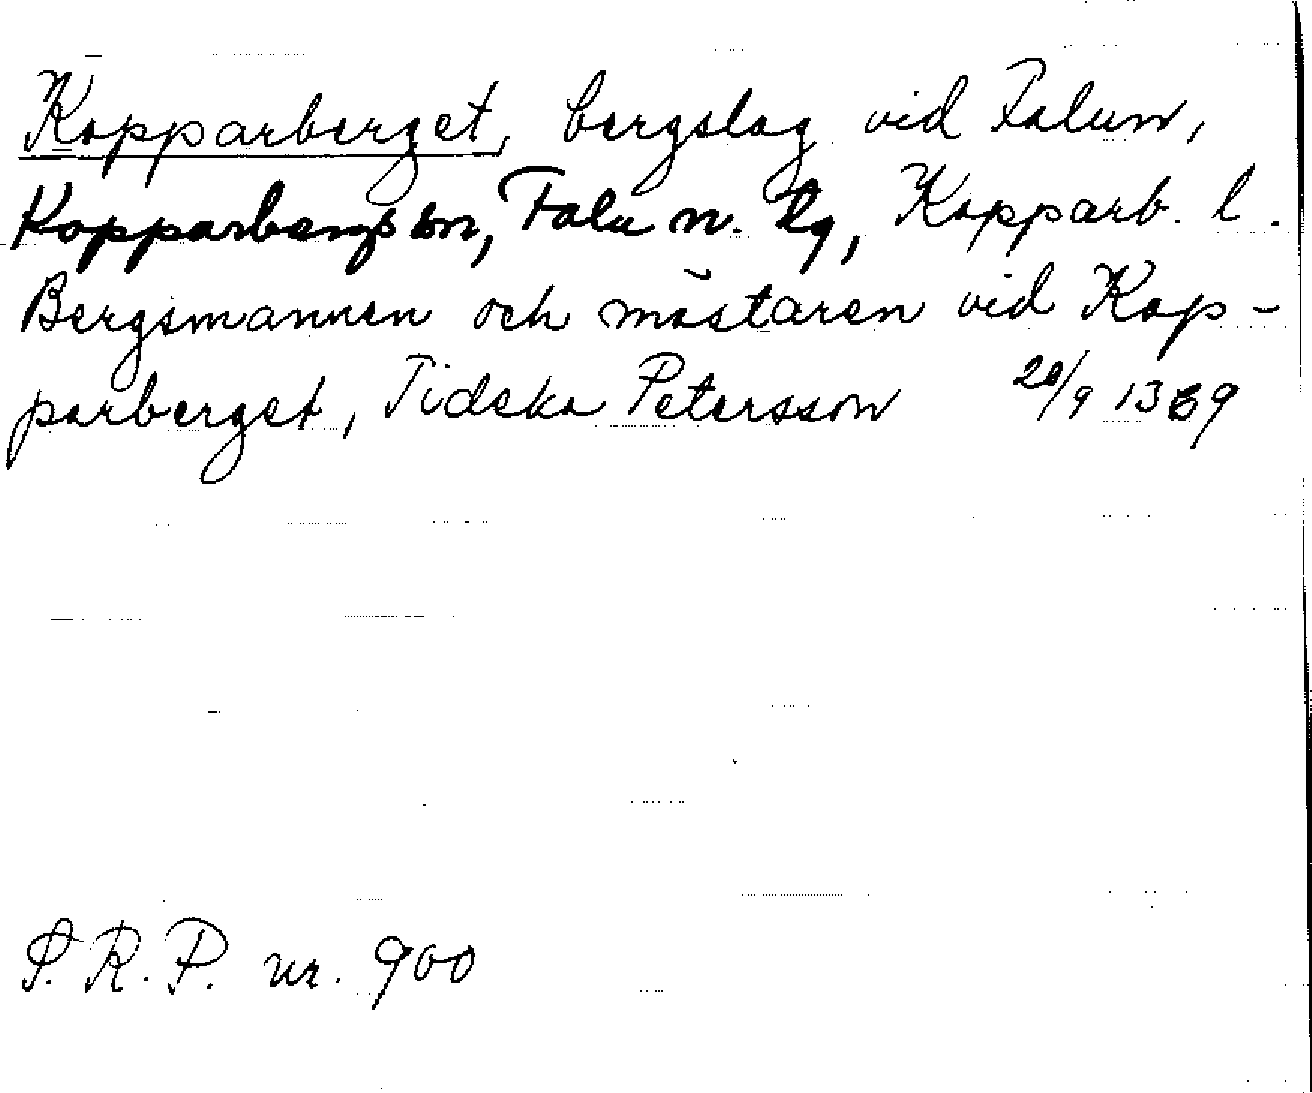 Kopparberget, bergslag vid Falun,
Kopparbergs sn, Falu n. lg, Kopparb. l.
Bergsmannen och mästaren vid Kop-
parberget, Tideka Petersson 20/9 1369
S.R.P. nr. 900